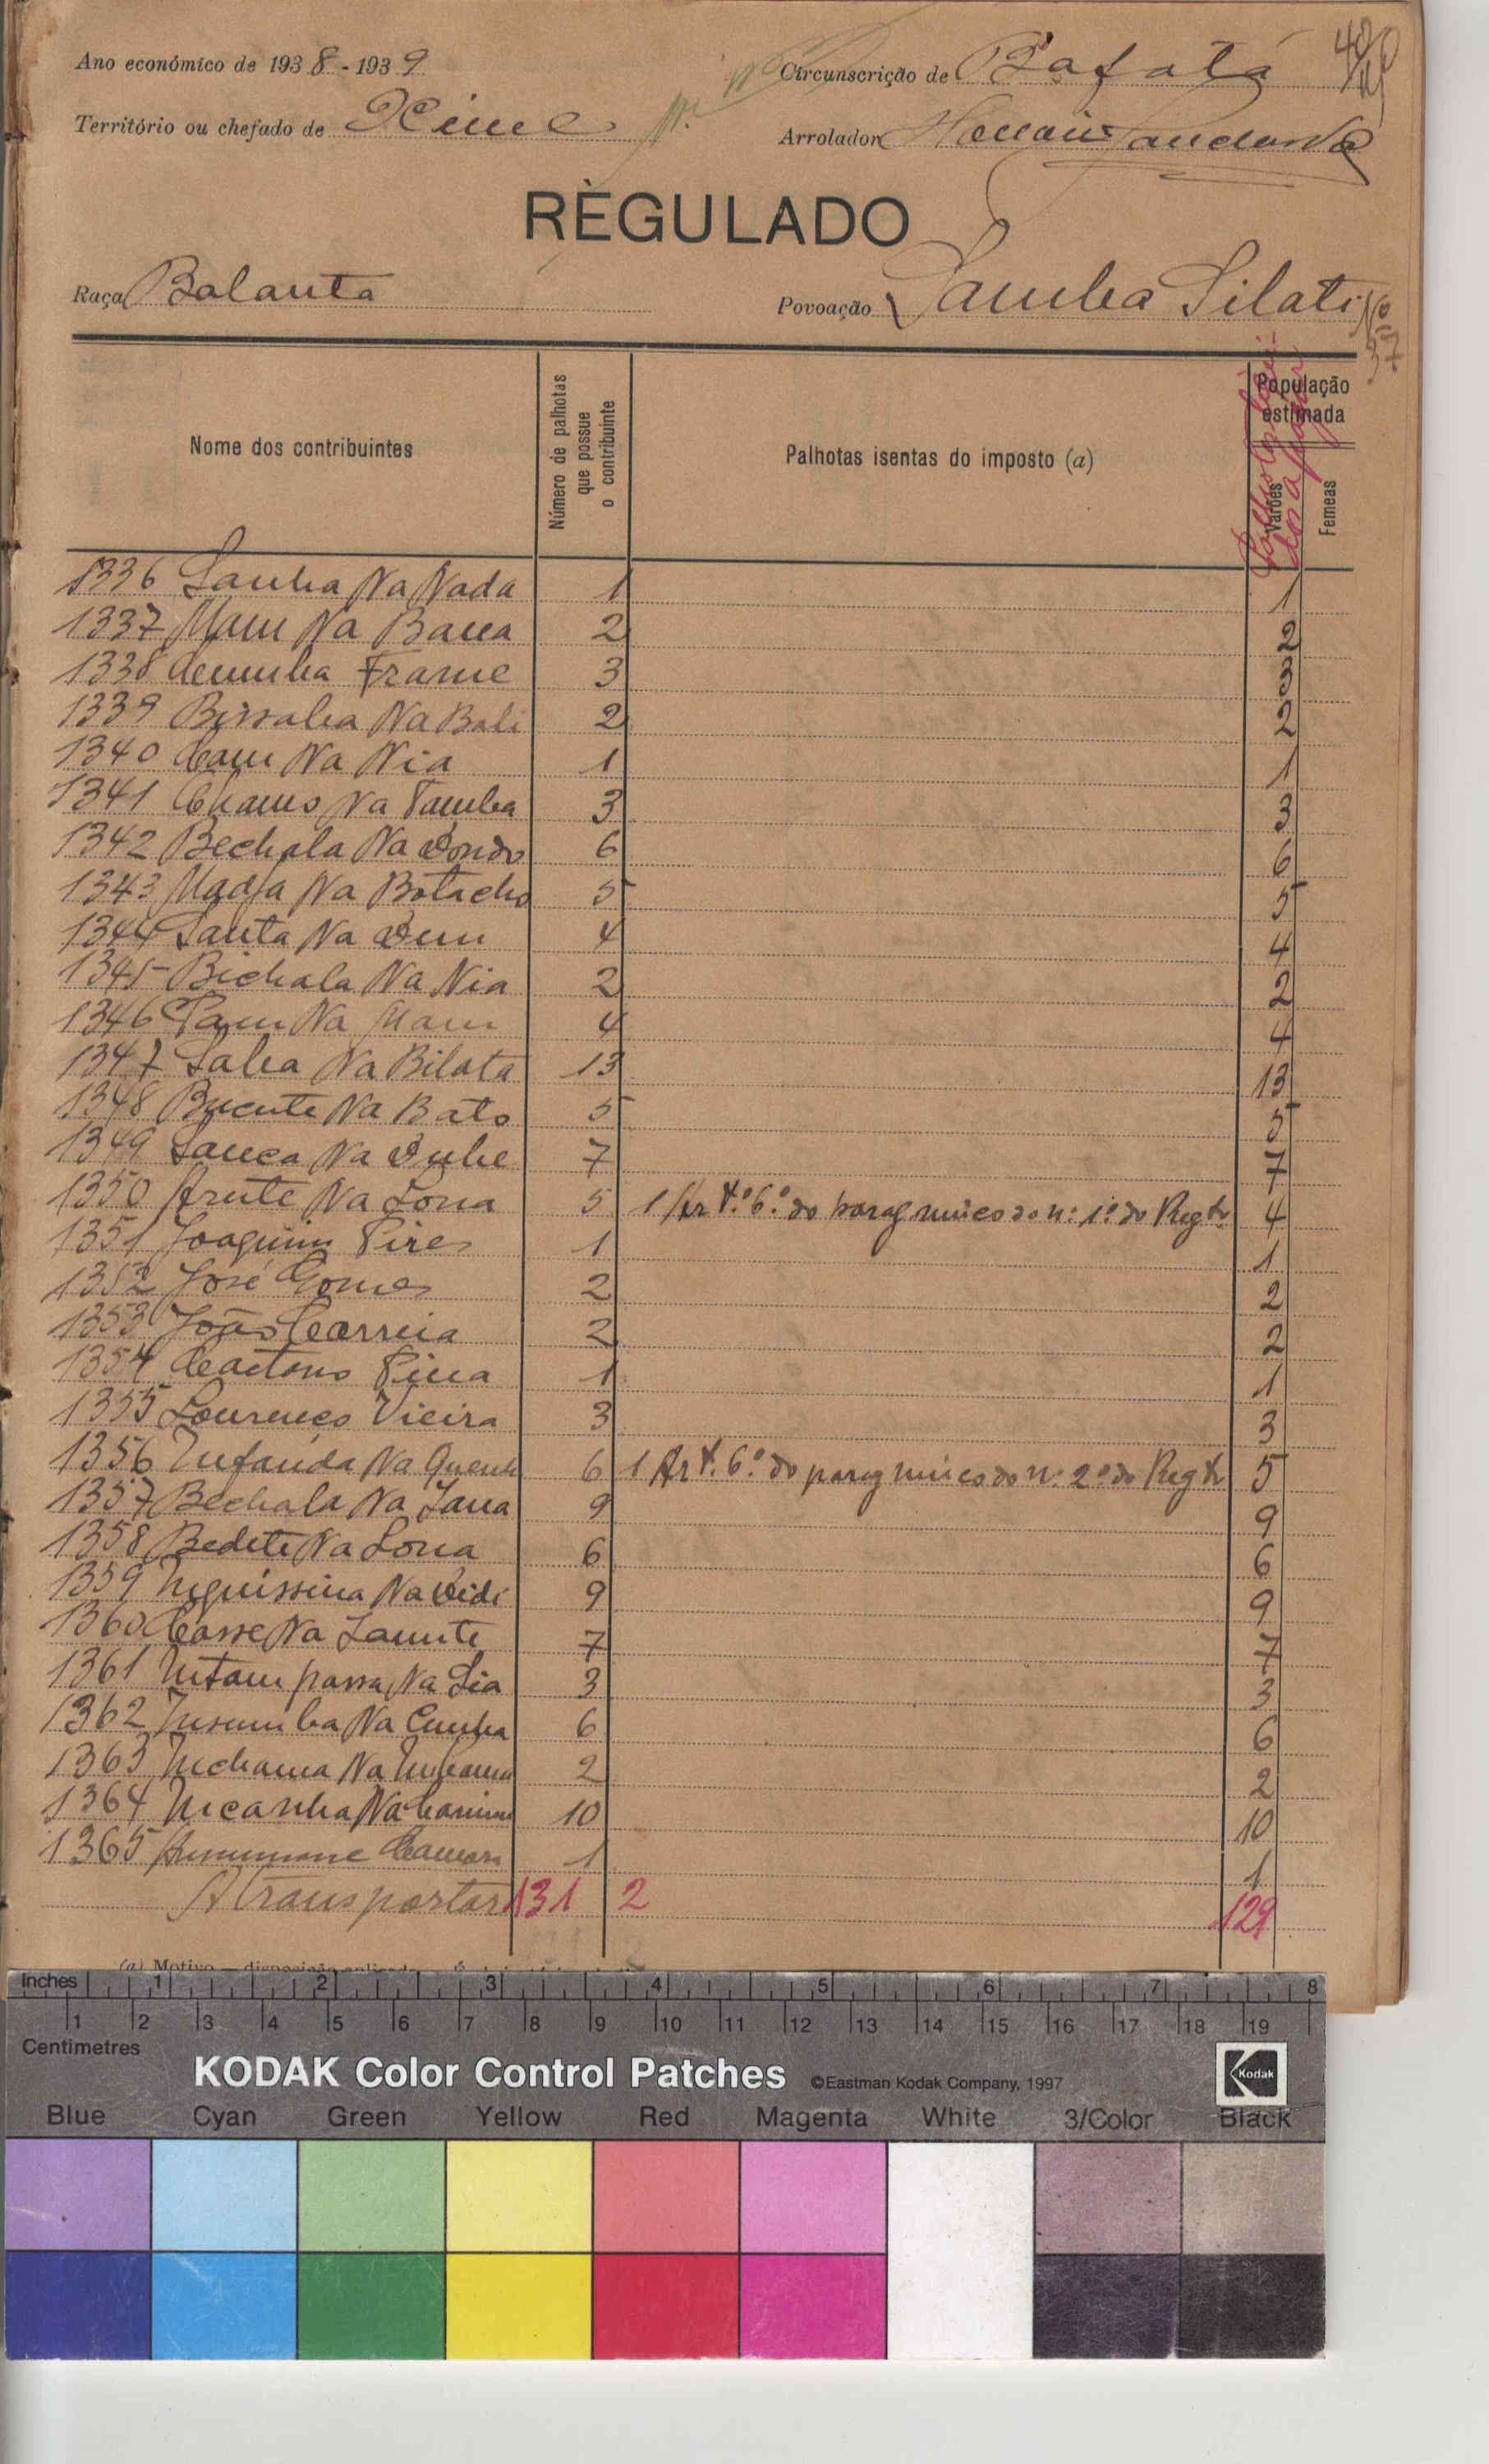 Ano económico de 1938-1939
Circunscrição de Bafatá
Território ou chefado de Xime
Arrolador
REGULADO
Raça Balanta
Povoação Samba Silati
Nº 37
Nome dos contribuintes
Número de palhotas que possue o contribuinte
Palhotas isentas do imposto (a)
População estimada
Varões
Femeas
1336 Samba Na Nada 1 1
1337 Mam Na Bana 2 2
1338 Frame 3 3
1339 Bissaba Na Bali 2 2
1340 Cam Na Nia 1 1
1341 Na Tamba 3 3
1342 Bechala Na Dondo 6 6
1343 Na Botache 5 5
1344 Santa Na Dum 4 4
1345 Bichala Na Nia 2 2
1346 Na Mam 4 4
1347 Saba Na Bilata 13 13
1348 Na Bato 5 5
1349 Na 7 7
1350 Arute Na Lona 5 1 Art.º 6.º do parag. unico do n.º 1.º do Regtº 4
1351 Joaquim Pires 1 1
1352 José Gomes 2 2
1353 João Correia 2 2
1354 Caetano Pina 1 1
1355 Lourenço Vieira 3 3
1356 Na 6 1 Art. 6.º do parag unico do n.º 2.º do Regtº 5
1357 Bechala Na Jana 9 9
1358 Bedete Na Lona 6 6
1359 Na Didi 9 9
1360 Casse Na 7 7
1361 Na Lia 3 3
1362 Na Cumba 6 6
1363 Na 2 2
1364 Na 10 10
1365 Camara 1 1
A transportar 131 2 129
(a) Motivo — disposição aplicada
Inches 1 2 3 4 5 6 7 8
1 2 3 4 5 6 7 8 9 10 11 12 13 14 15 16 17 18 19
Centimetres
KODAK Color Control Patches ©Eastman Kodak Company, 1997 Kodak
Blue Cyan Green Yellow Red Magenta White 3/Color Black